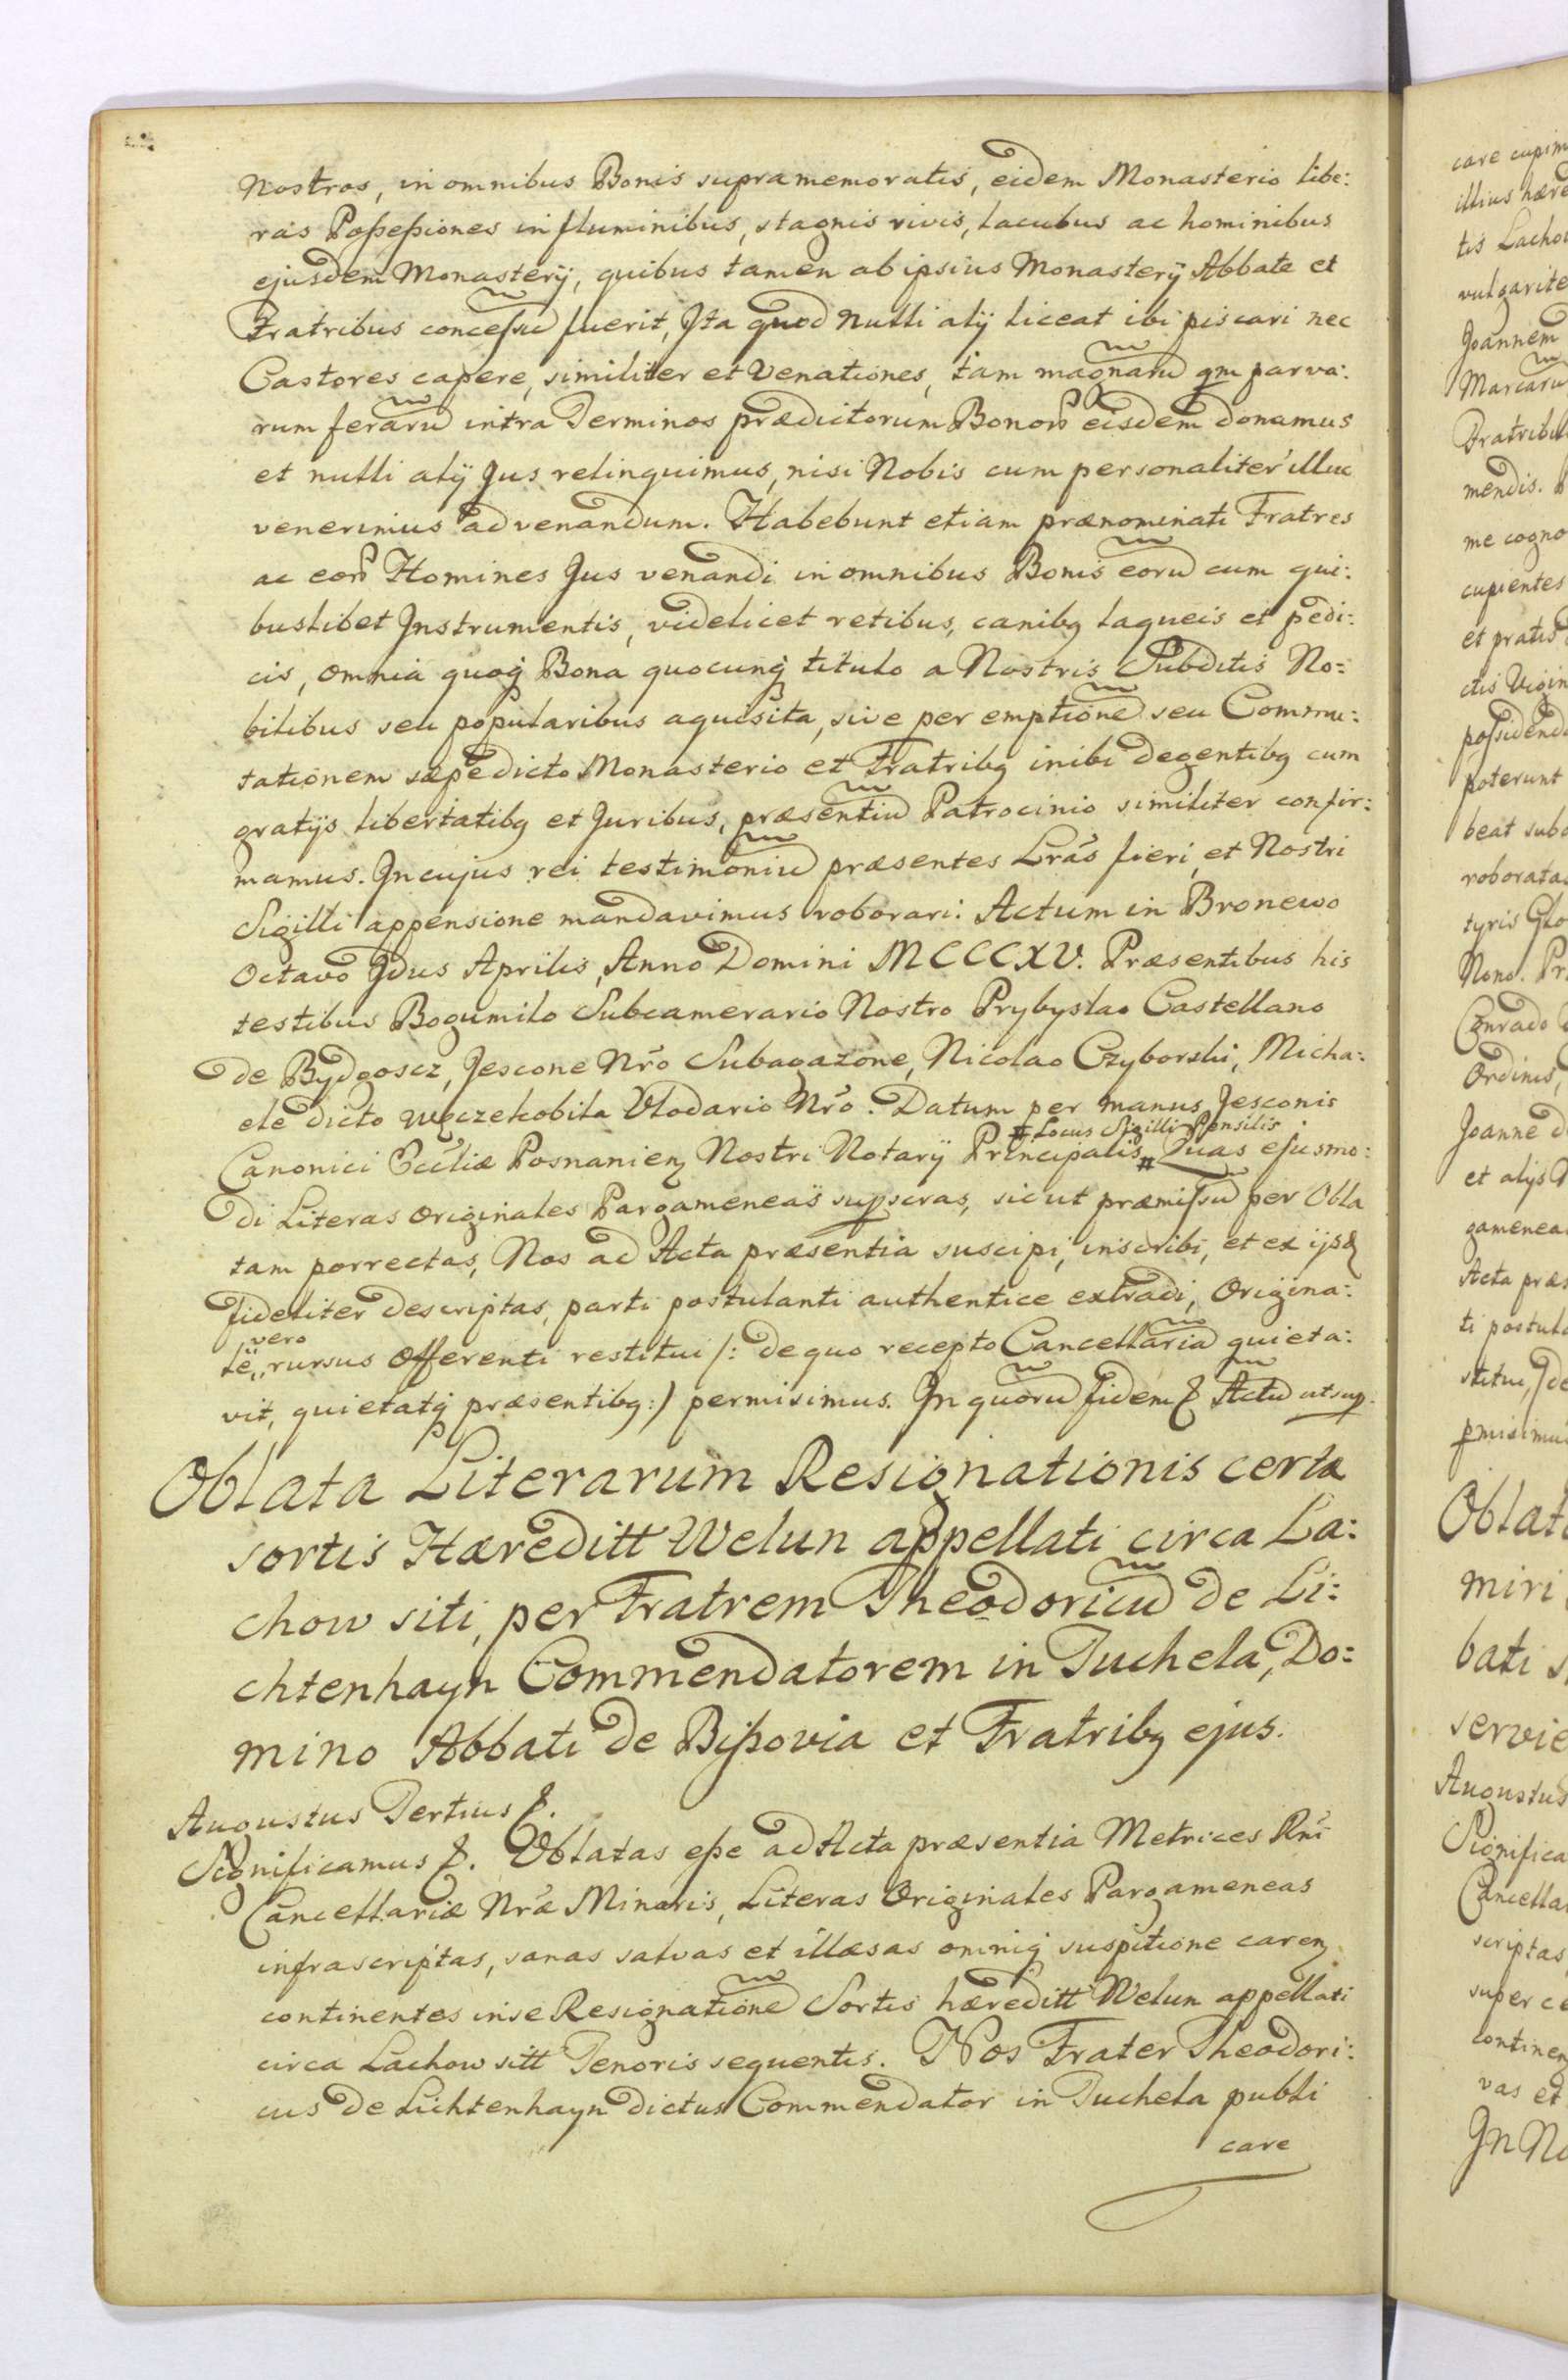 Nostros, in omnibus Bonis supramemoratis, eidem Monasterio libe:
ras Poßeßiones in fluminibus, stagnis rivis, lacubus ac hominibus
ejusdem Monasterÿ, quibus tamen ab ipsius Monasterÿ Abbate et
Fratribus conceſsū fuerit, Jta quod nulli alÿ liceat ibi piscari nec
Castores capere, similiter et Venationes, tam magnarū qm parva:
rum ferarū intra Terminos prædictorum Bonorꝝ eisdem donamus
et nulli alÿ Jus relinquimus, nisi Nobis cum personaliter illuc
venerimus ad venandum. Habebunt etiam prænominati Fratres
ac eorꝝ Homines Jus venandi in omnibus Bonis eorū cum qui:
buslibet Jnstrumentis, videlicet retibus, canibꝫ laqueis et pedi:
cis, omnia quoqꝫ Bona quocunqꝫ titulo a Nostris Subditis No:
bilibus seu popularibus aquisita, sive per emptionē seu Commu:
tationem sæpedicto Monasterio et Fratribꝫ inibi degentibꝫ cum
gratÿs libertatibꝫ et Juribus, præsentiū Patrocinio similiter confir:
mamus. Jn cujus rei testimoniū præsentes Lrãs fieri, et Nostri
Sigilli appensione mandavimus roborari: Actum in Bronewo
Octavo Jdus Aprilis, Anno Domini MCCCXV. Præsentibus his
testibus Bogumilo Subcamerario Nostro Prybyslao Castellano
de Bydgoscz, Jescone Nrõ Subagazone, Nicolao Czyborski, Micha:
ele dicto węczekobila Vlodario Nrõ. Datum per manus Jesconis
# Locus Sigilli Pensilis
Canonici Ecclíæ Posnanienꝫ Nostri Notarÿ Principalis # Quas ejusmo:
di Literas originales Pargameneas supscras, sic ut præmiſsū per Obla
tam porrectas, Nos ad Acta præsentia suscipi, inscribi, et ex ijsd
fideliter descriptas, parti postulanti authentice extradi, Origina:
vero
le,, rursus Offerenti restitui /: de quo recepto Cancellariā quieta:
vit, quietatqꝫ præsentibꝫ :/ permisimus. Jn quorū fidem &. Actū ut sup.
Oblata Literarum Resignationis certæ
sortis Hæreditt Welun appellati circa La:
chow siti, per Fratrem Theodoricū de Li:
chtenhayn Commendatorem in Tuchela, Do:
mino Abbati de Bißovia et Fratribꝫ ejus.
Augustus Tertius &.
Significamus &. Oblatas eße ad Acta præsentia Metrices Rnĩ
Cancellariæ Nrãe Minoris, Literas Originales Pargameneas
infrascriptas, sanas salvas et illæsas omniqꝫ suspitione carenꝫ
continentes in se Resignationē Sortis hæreditt Welun appellati
circa Lachow sitt Tenoris sequentis. Nos Frater Theodori:
cus de Lichtenhayn dictus Commendator in Tuchela publi
care
care cupim
illius hære
tis Lachow
vulgarite
Joannem
Marcarū
Fratribu
mendis.
me cogno
cupientes
et pratis
ctis Vigin
poſsidend
poterunt
beat sub
roboratas
tyris Glo
Nono. Pr
Conrado
Ordinis,
Joanne d
et alÿs
gamenea
Acta præ
ti postula
stitui,
pmisimu
Oblat
miri
bati s
servie
Augustus
Significa
Cancella
scriptas
super ce
continen
vas et
Jn No